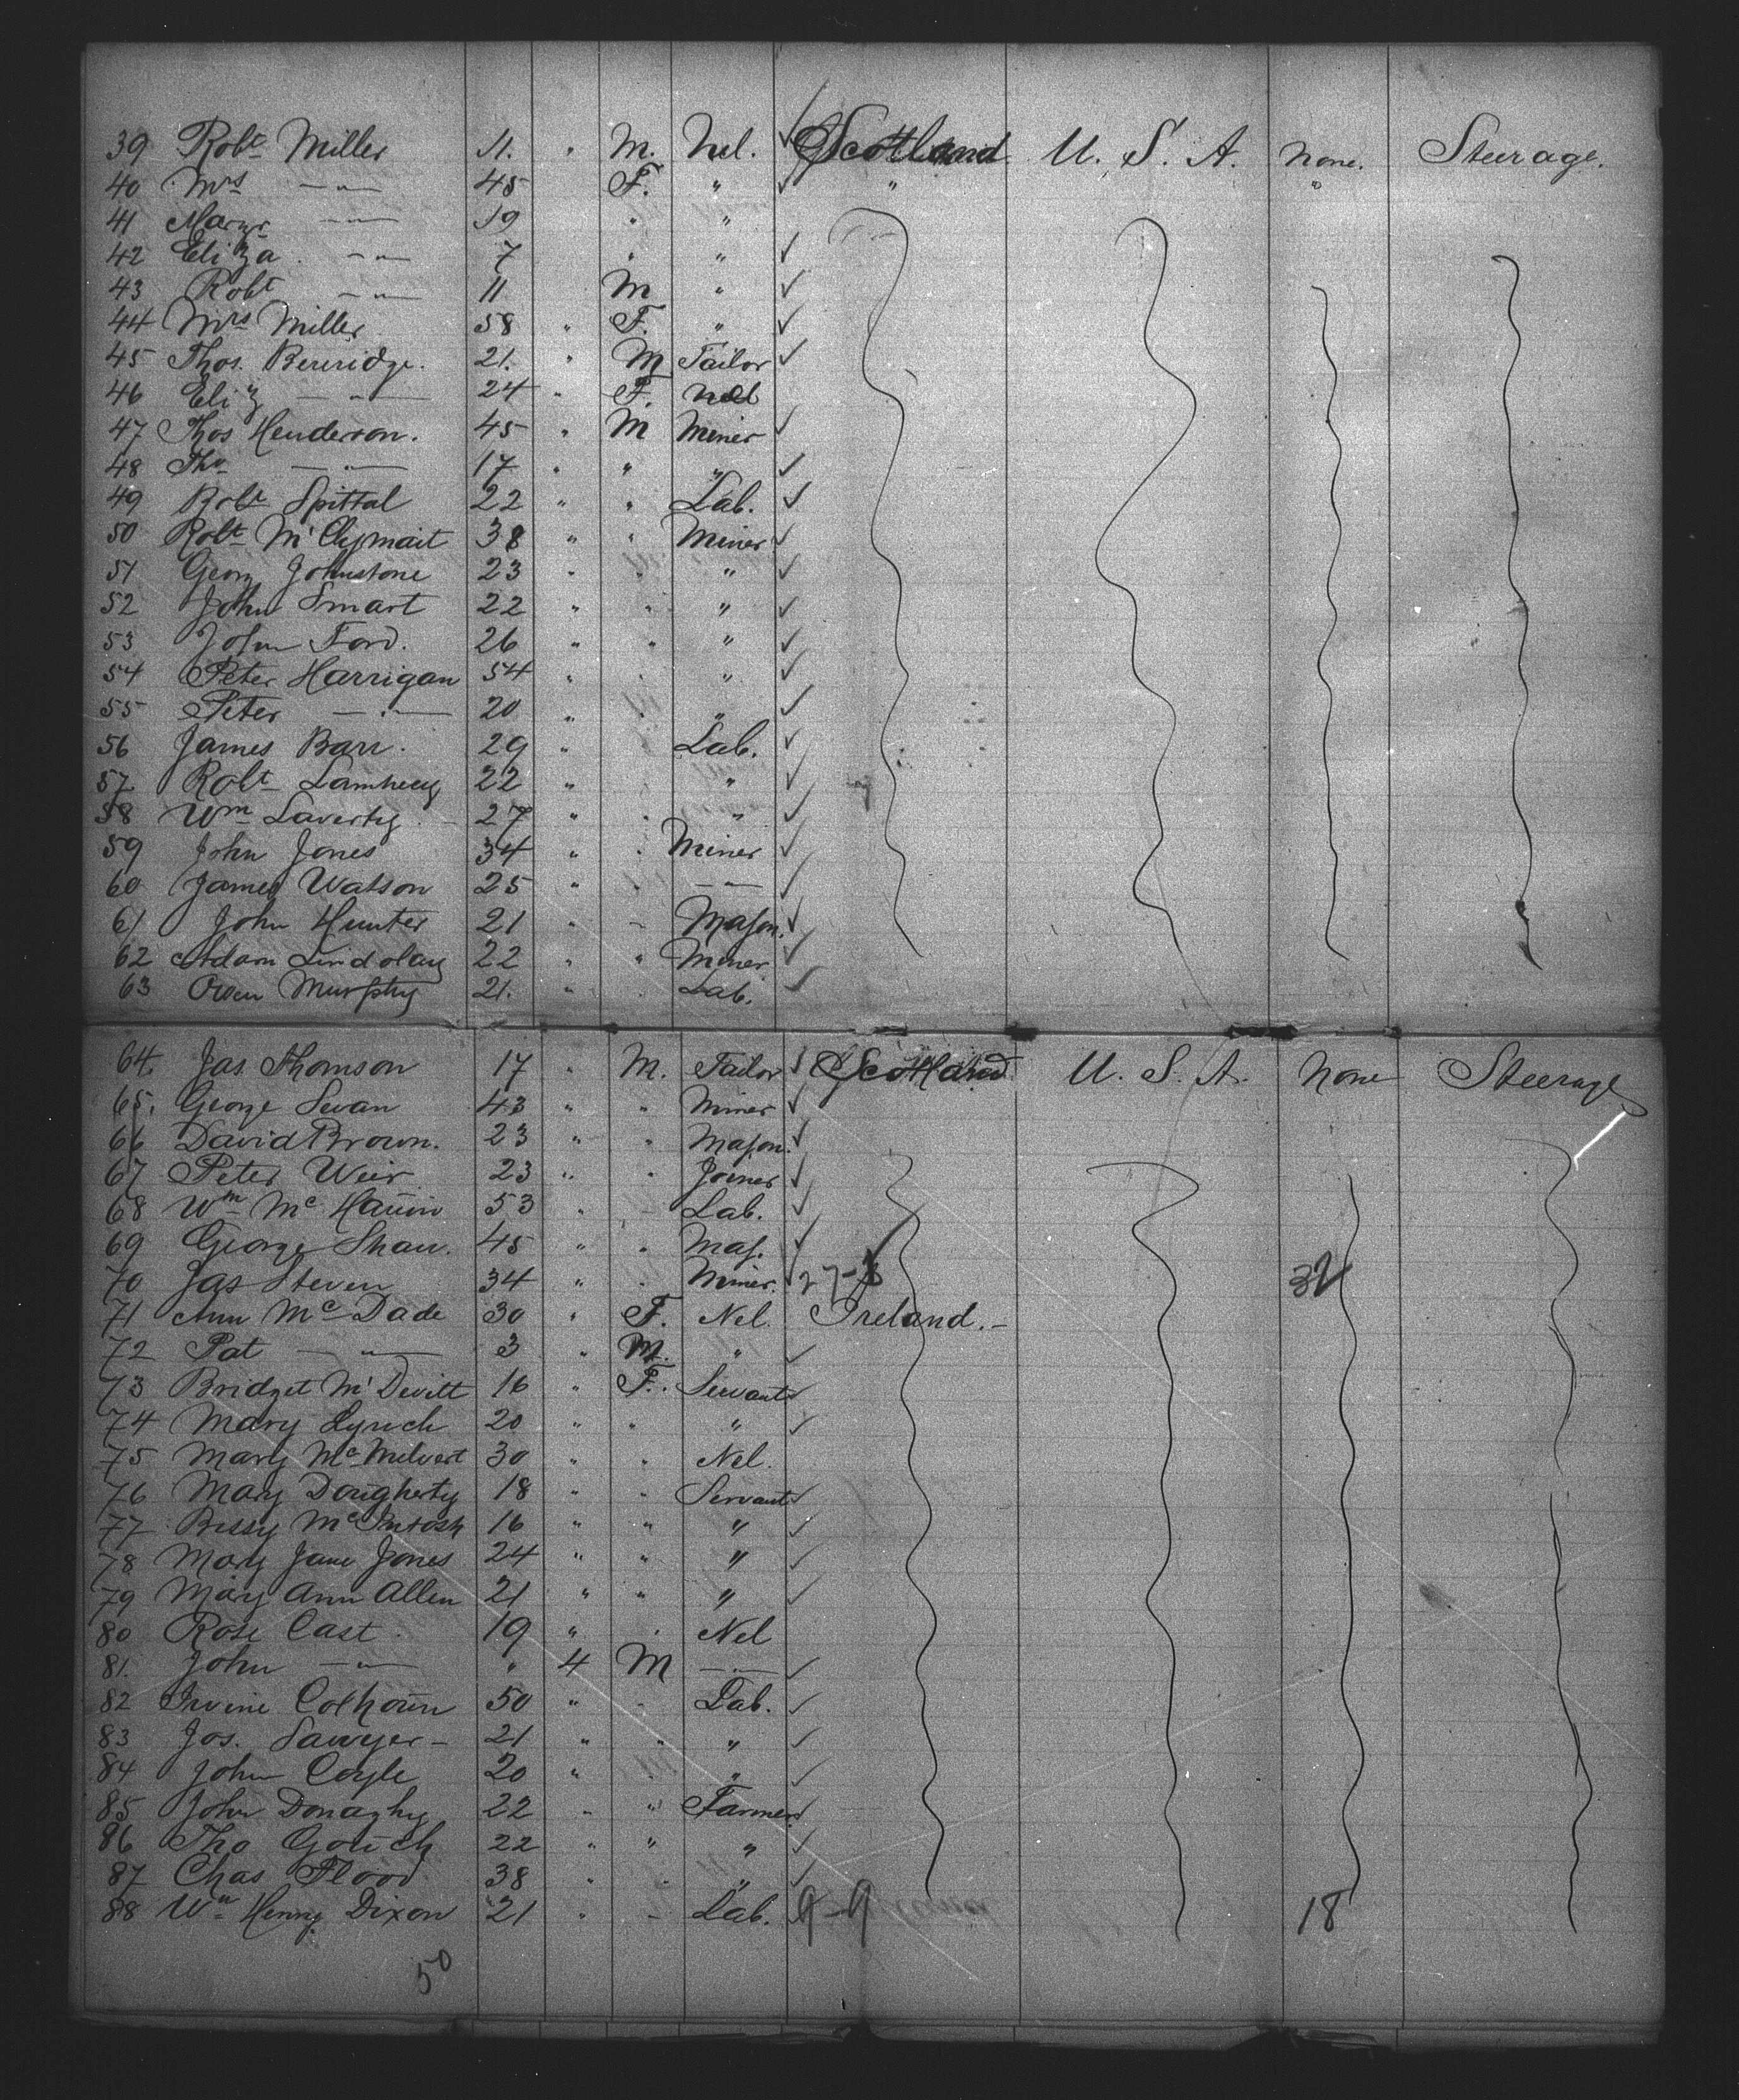 39 Robt Miller 11. " M. Nil. Scotland U. S. A. None. Steerage.
40 Mrs —"— 45 F. " " "
41 Mary —"— 19 " "
42 Eliza. —"— 7 " "
43 Robt —"— 11 M "
44 Mrs Miller 58 " F. "
45 Thos. Beveridge. 21. " M Tailor
46 Eliz —"— 24 " F. Nil
47 Thos Henderson. 45 " M Miner
48 Tho —"— 17 " " "
49 Robt Spittal 22 " " Lab.
50 Robt 38 " " Miner
51 Georg Johnstone 23 " " "
52 John Smart 22 " " "
53 John Ford. 26 " " "
54 Peter Harrigan 54 " " "
55 Peter —"— 20 " " "
56 James Barr. 29 " Lab.
57 Robt 22 " "
58 Wm Laverty 27 " " "
59 John Jones 34 " " Miner
60 James Watson 25 " " —"—
61 John Hunter 21 " - Mason.
62 Adam 22 " " Miner
63 Owen Murphy 21. " " Lab.
64. Jas Thomson 17 " M. Tailor Scotland U. S. A. None Steerage
65. George Swan 43 " " Miner
66 David Brown. 23 " " Mason.
67 Peter Weir 23 " " Joiner
68 Wm Mc 53 " - Lab.
69 George Shaw. 45 " " Mas.
70 Jas Steven 34 " " Miner. 27-8 32
71 Ann Mc Dade 30 " F. Nel. Ireland.-
72 Pat —"— 3 " M. "
73 Bridget M' Devitt 16 " F. Servant
74 Mary Lynch 20 " " "
75 Mary Mc 30 " " Nel.
76 Mary Dougherty 18 " " Servant
77 Bessy McIntosh 16 " " "
78 Mary Jane Jones 24 " " "
79 Mary Ann Allen 21 " " "
80 Rose Cast. 19 " " Nel
81. John —"— " 4 M —"—
82 Irvine Colhoun 50 " - Lab.
83 Jos. Sawyer- 21 " " "
84 John Coyle 20 " " "
85 John Donaghy 22 " " Farmer
86 Tho 22 " " "
87 Chas Flood 38 " " "
88 Wm Henry Dixon 21 " - Lab. 9-9 18
50